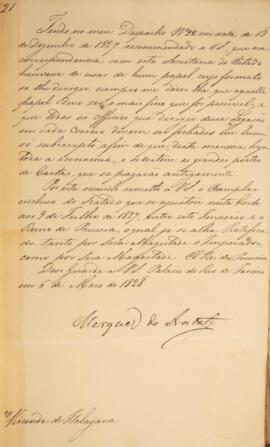 21
Tendo no meu Despacho Nº 28 em data de 18
de Dezembro de 1827 recommendado a VS. que na
correspondencia com esta Secretaria de Estado
houvesse de usar de hum papel cujo formato
se lhe dirigio, cumpre-me dizer-lhe que aquelle
papel deve ser o mais fino que for possivel, e
que todos os officios que dirigir dessa Legação
em cada Correio devem ser fechados em hum
só subscripto, afim de que desta maneira haja
toda a economia, e se evitem os grandes portes
de Cartas, que se pagavão antigamente.
Por esta occasião remetto a VS. o Exemplar
incluso do Tratado que se ajustou nesta Corte
aos 9 de Julho de 1827, entre este Imperio e o
Reino da Prussia, o qual já se acha Ratifica-
do, tanto por Sua Magestade o Imperador,
como por Sua Magestade El Rei da Prussia
Deos Guarde a VS. Palacio do Rio de Janeiro
em 6 de Maio de 1828
Marquez do Aracaty
Visconde de Itabayana